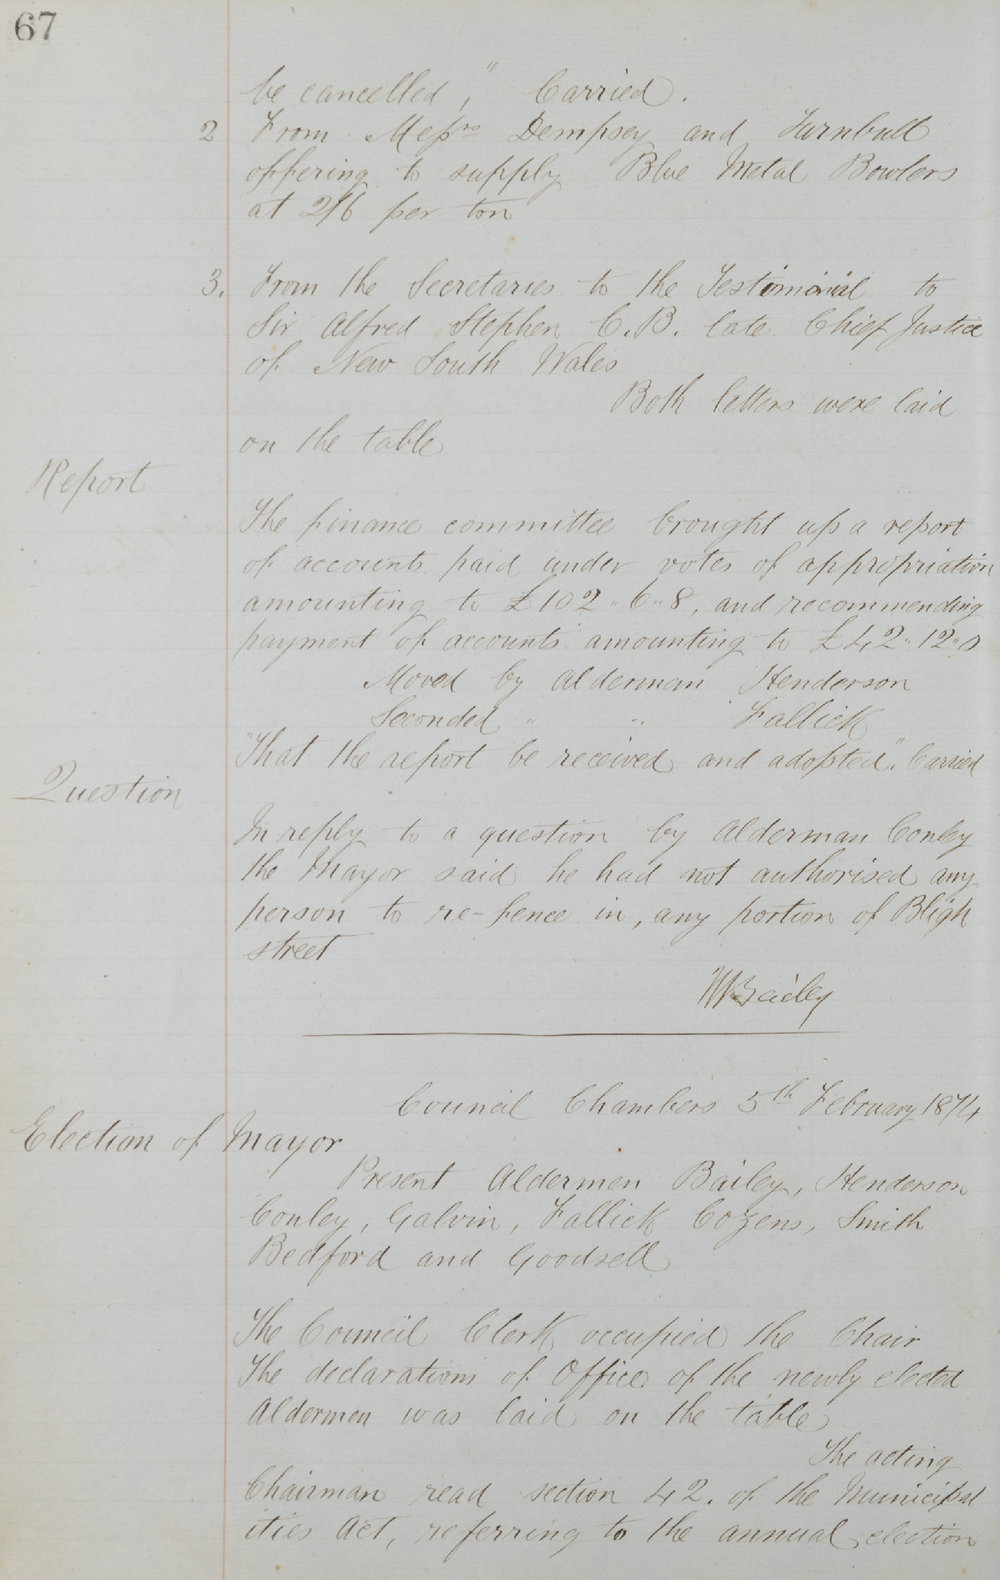 67
be cancelled," Carried.
2 From Messrs Dempsey and Turnbull
offering to supply Blue Metal Bowlers
at 2/6 per ton
3. From the Secretaries to the Testimonial to
Sir Alfred Stephen C.B. late Chief Justice
of New South Wales
Both letters were laid
on the table
Report
The finance committee brought up a report
of accounts paid under votes of appropriation
amounting to £102 " 6 " 8, and recommending
payment of accounts amounting to £42 " 12 "
Moved by Alderman Henderson
Seconded " " Fallick
"That the report be received and adopted". Carried
Question
In reply to a question by Alderman Conley
the Mayor said he had not authorised any
person to re-fence in, any portion of Bligh
street
Bailey
Council Chambers 5th February 1874
Election of Mayor
Present Aldermen Bailey, Henderson
Conley, Galvin, Fallick Cozens, Smith
Bedford and Goodsell
The Council Clerk occupied the Chair
The declarations of Office of the newly elected
Aldermen was laid on the table
The acting
Chairman read section 42. of the Municipal
ities Act, referring to the annual election